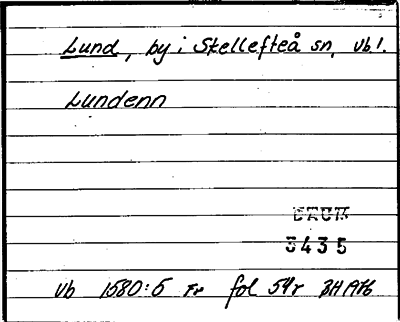 Lund, by i Skellefteå sn, Vb!.
Lundenn
5435
Vb 1580:5 Fr fol 54r BHAFb